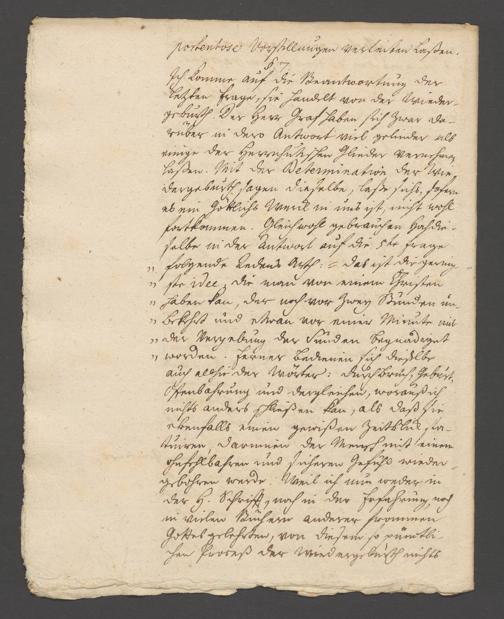 portentose Vorstellungen verleiten laßen.
§ 7
Ich komme auf die Beantwortung der
letzten Frage, sie handelt von der Wieder-
geburth. Der Herr Graf haben sich zwar da-
rüber in dero Antwort viel gelinder als
einige der Herrnhutischen Glieder vernehmen
laßen. Mit der Determination der Wie-
dergeburth, sagen dieselbe, laße sichs, sofern
es ein Göttlichs Werk in uns ist, nicht wohl
fortkommen. Gleichwohl gebrauchen Hochdie-
selbe in der Antwort auf die 5te Frage
„ folgende Redens Arth: das ist die gering
„ ste Idee, die man von einem Christen
„ haben kan, der noch vor zwey Stunden un-
„ bekehrt und etwan vor einer Minute mit
„ der Vergebung der Sünden begnadiget
„ worden. Ferner bedienen sich dieselbe
auch der Wörter: Durchbruch, Geburt,
Offenbahrung und dergleichen, woraus sich
nichts anders schließen kan, als daß sie
ebenfalls einen gewißen Zeitblick sta-
tuiren, darinnen der Mensch mit einem
unfehlbahren und sicheren Gefühl wieder-
gebohren werde. Weil ich nun weder in
der H. Schrifft, noch in der Erfahrung, noch
in vielen Büchern anderer frommen
Gottesgelehrten, von diesem so pünctli-
chen Proceß der Wiedergeburth nichts